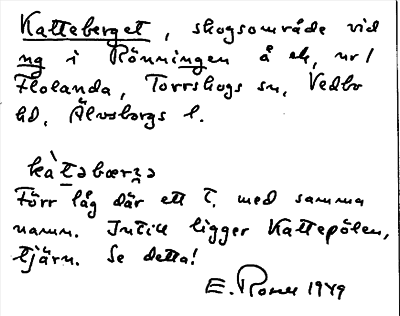 Katteberget, skogsområde vid
ng i Rönningen å ek, nr 1
Flolanda, Torrskogs sn, Vedbo
hd, Älvsborgs l.
kàtəbærʒə
Förr låg där ett t. med samma
namn. Intill ligger Kattepölen,
tjärn. Se detta!
E. 1949